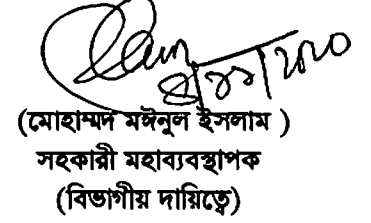 (মোহাম্মদ মঈনুল ইসলাম )
সহকারী মহাব্যবস্থাপক
(বিভাগীয় দায়িত্বে)